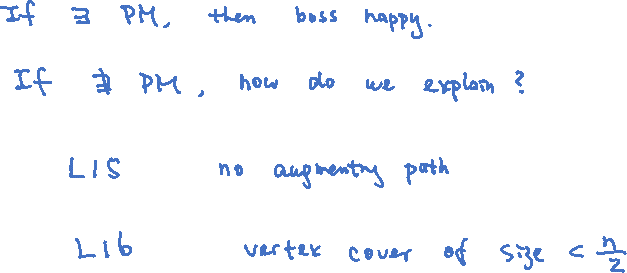 If ∃ PM, then boss happy.
If ∄ PM, how do we explain?
L15 no augmenting path
L16 vertex cover of size < n/2